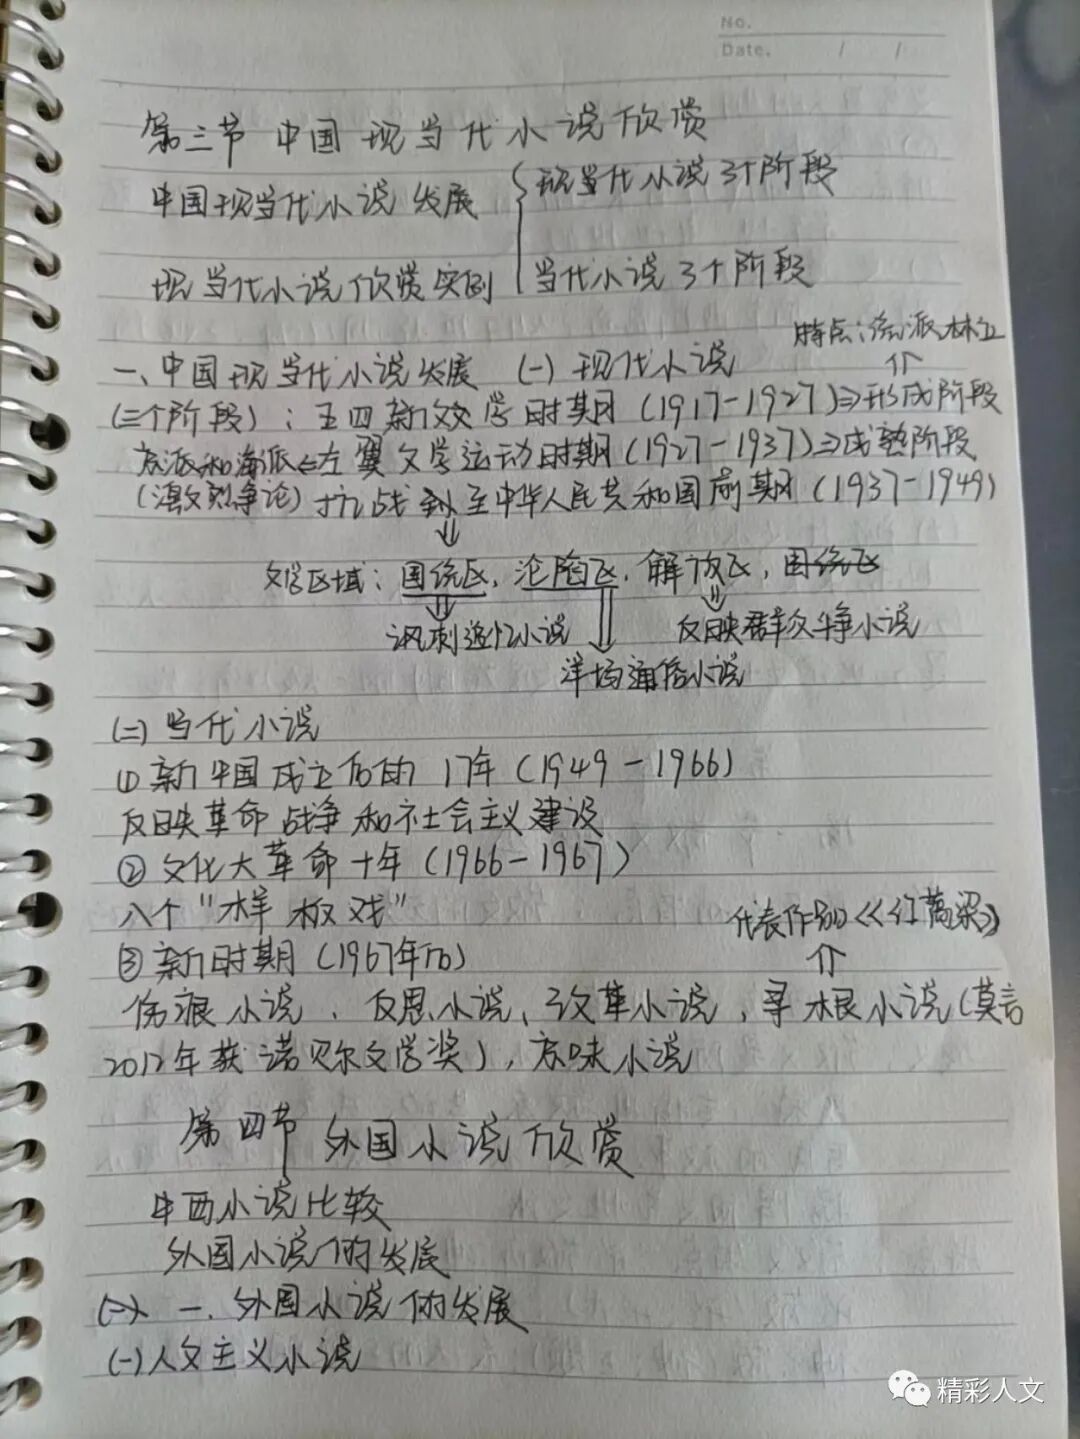 No.
Date. / /
第三节 中国现当代小说欣赏
中国现当代小说发展 { 现当代小说3个阶段
现当代小说欣赏实例 当代小说3个阶段
特点:流派林立
⇑
一、中国现当代小说发展 (一) 现代小说
(三个阶段):五四新文学时期(1917-1927)⇒形成阶段
京派和海派⇐左翼文学运动时期(1927-1937)⇒成熟阶段
(激烈争论) 抗战到至中华人民共和国前期(1937-1949)
⇓
文学区域:国统区,沦陷区,解放区,国统区
⇓ ⇓ ⇓
讽刺追忆小说 反映群众斗争小说
洋场通俗小说
(二) 当代小说
① 新中国成立后的17年(1949-1966)
反映革命战争和社会主义建设
② 文化大革命十年(1966-1967)
八个"样板戏"
代表作品《红高粱》
⇑
③ 新时期(1967年后)
伤痕小说、反思小说、改革小说,寻根小说(莫言
2012年获诺贝尔文学奖),京味小说
第四节 外国小说欣赏
中西小说比较
外国小说的发展
(一) 一、外国小说的发展
(一)人文主义小说
精彩人文